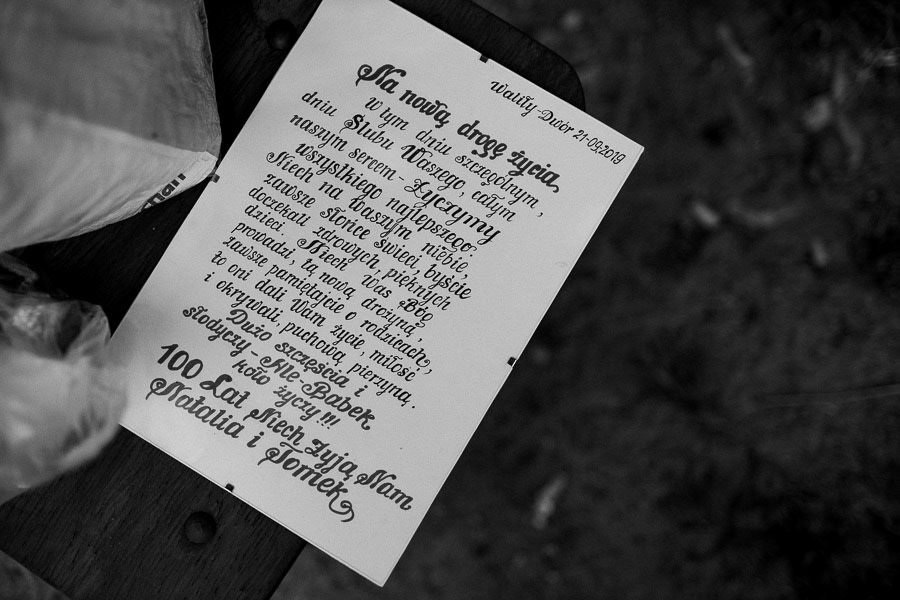 Waliły-Dwór 21-09.2019
Na nową drogę życia
w tym dniu szczególnym,
dniu Ślubu Waszego, całym
naszym sercem - Życzymy
wszystkiego najlepszego.
Niech na waszym niebie,
zawsze słońce świeci, byście
doczekali zdrowych, pięknych
dzieci. Niech Was Bóg
prowadzi, tą nową drożyną,
zawsze pamiętajcie o rodzicach,
to oni dali Wam życie, miłość
i okrywali, puchową pierzyną.
Dużo szczęścia i
słodyczy - Ale-Babek
koło życzy!!!
100 Lat Niech Żyją Nam
Natalia i Tomek